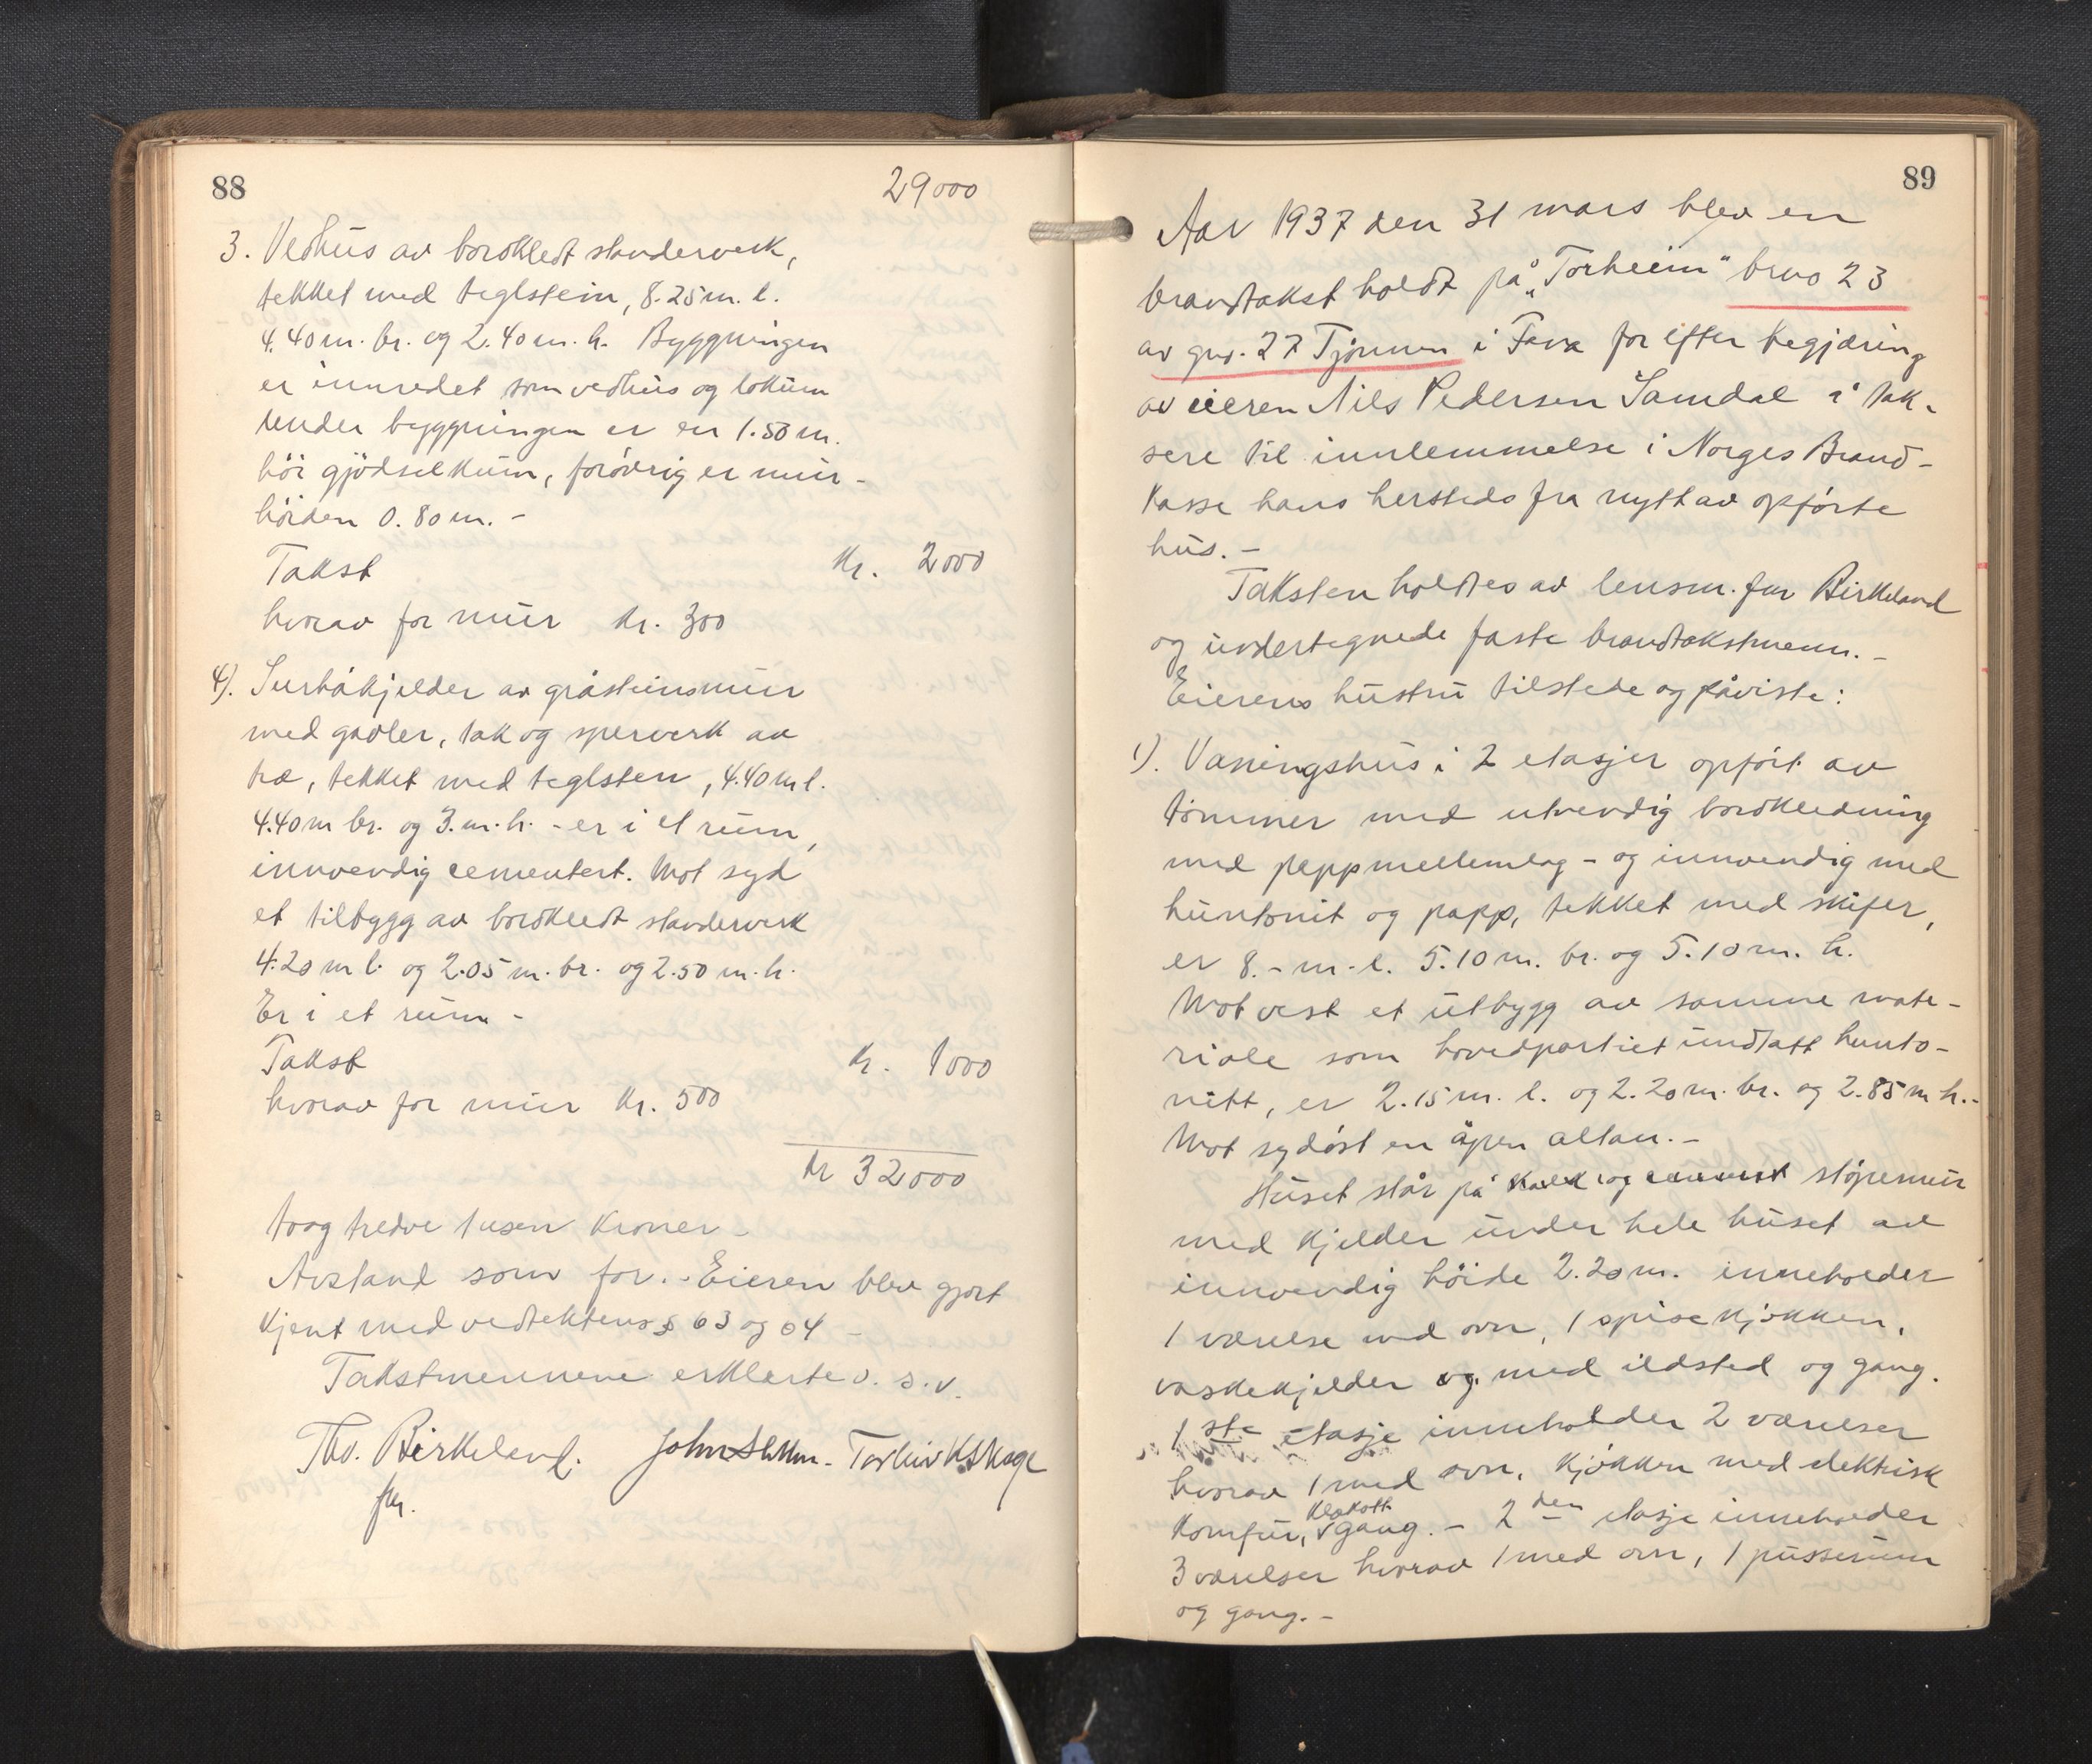 88
29000
3. Vedhus av bordkledt stenderverk,
tekket med teglstein, 8.25 m. l.
4.40 m. br. og 2.40 m. h. Byggningen
er innredet som vedhus og lokum
under byggningen er en 1.50 m.
høi gjødselkum, forøvrig er mur-
høiden 0.80 m. -
Takst Kr. 2000
hvorav for mur Kr. 300
4). Surhåkjelder av gråsteinsmur
med gavler, tak og sperverk av
træ, tekket med teglsten, 4.40 m l.
4.40 m br. og 3. m. h. - er i et rum,
innvendig cementert. Mot syd
et tilbygg av bordkledt stenderverk
4.20 m l. og 2.05 m. br. og 2.50 m. h.
Er i et rum -
Takst Kr. 1000
hvorav for mur Kr. 500
Kr 32000
toog tredve tusen kroner -
Avstand som før. - Eieren blev gjort
kjent med vedtektens § 63 og 64 -
Takstmennene erklerte o. s. v.
Tho. Birkeland. John
fm.
89
Aar 1937 den 31 mars blev en
brandtakst holdt på „Torheim" brno 23
av gno. 27 Tjønnen i Fana for efter begjæring
av eieren Nils Pedersen Samdal å tak-
sere til innlemmelse i Norges Brand-
kasse hans hersteds fra nytt av opførte
hus. -
Taksten holdtes av lensm. fm Birkeland
og undertegnede faste brandtakstmenn. -
Eierens hustru tilstede og påviste:
1). Vaningshus i 2 etasjer opført av
tømmer med utvendig bordkledning
med pappmellemlag - og innvendig med
huntonit og papp, tekket med skifer,
er 8. - m. l. 5.10 m. br. og 5.10 m. h.
Mot vest et utbygg av samme mate-
riale som hovedpartiet undtatt hunto-
nitt, er 2.15 m. l. og 2.20 m. br. og 2.85 m h. -
Mot sydøst en åpen altan. -
Huset står på kalk og cement støpemur
med kjelder under hele huset av
innvendig høide 2.20 m. inneholder
1 værelse med ovn, 1 spisekjøkken,
vaskekjelder og med ildsted og gang.
1 ste etasje inneholder 2 værelser
hvorav 1 med ovn, kjøkken med elektrisk
komfur, klokett gang. - 2 den etasje inneholder
3 værelser hvorav 1 med ovn, 1 pusserum
og gang. -